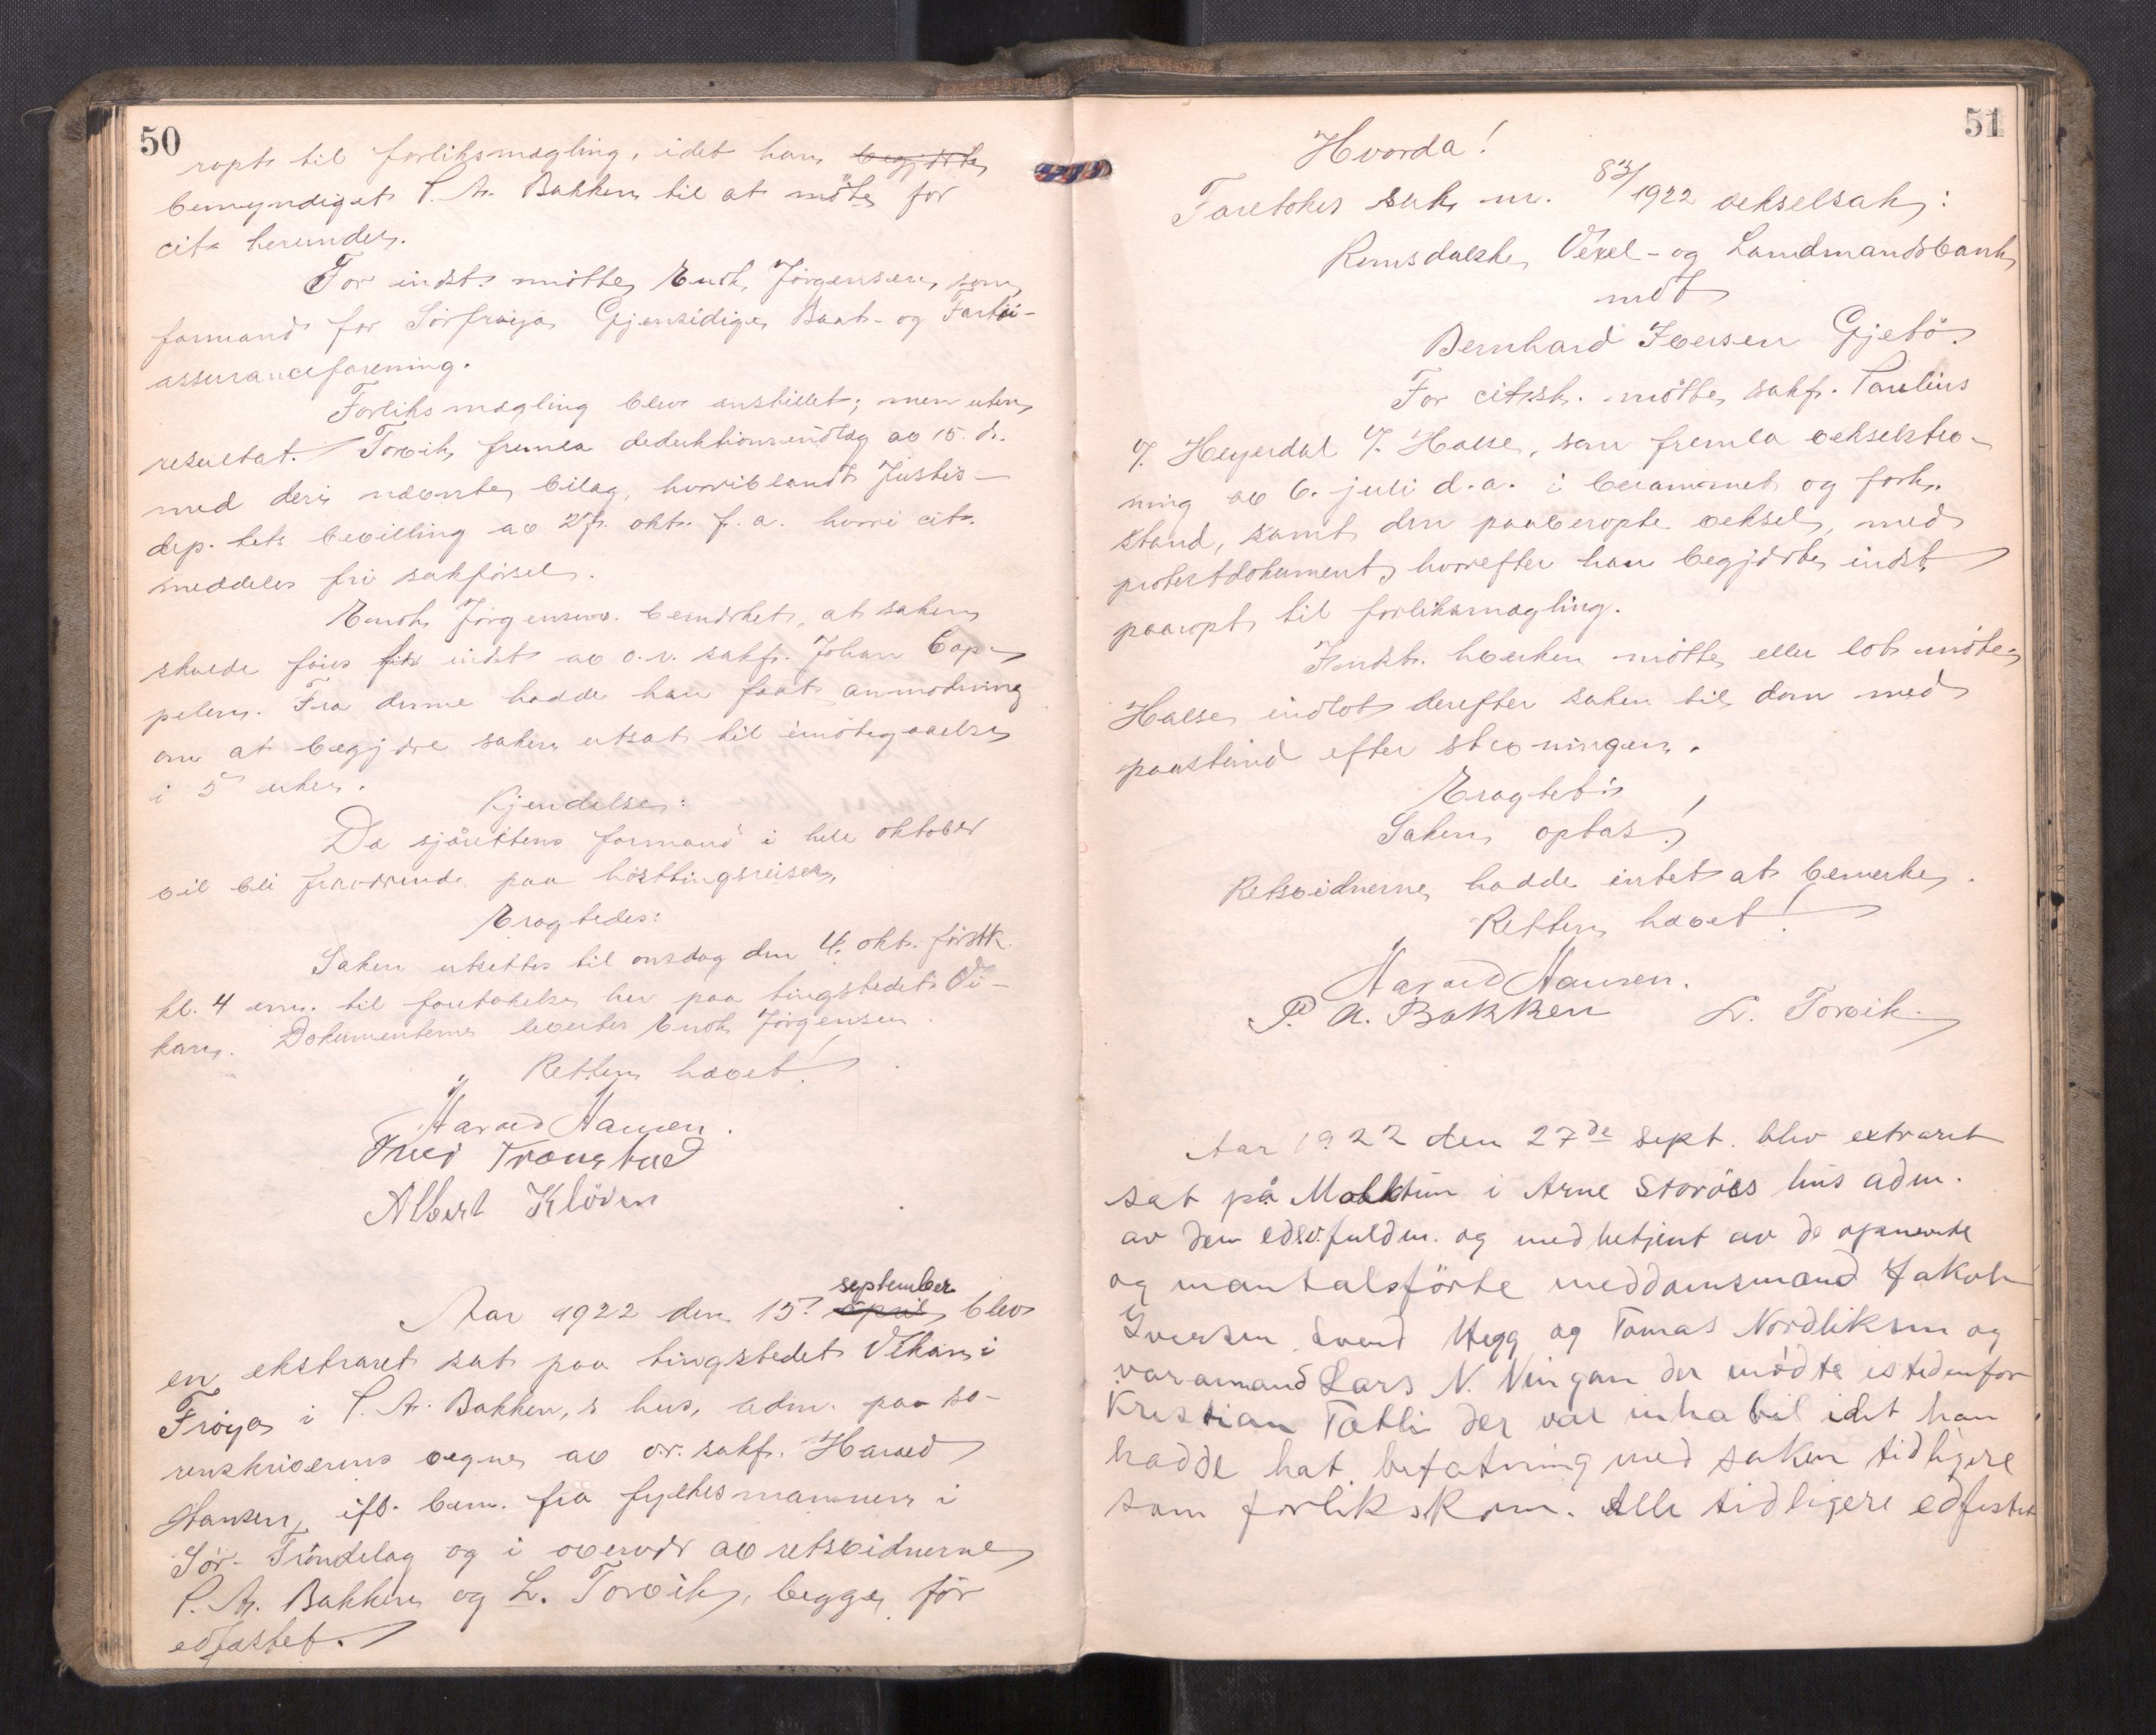 50
ropt til forliksmægling, idet han begjærte
bemyndiget P. A. Bakken til at møte for
cit. herunder.
For indst. møtte Enok Jørgensen, som
formand for Sørfrøya Gjensidige Baat- og Fartøi-
assuranceforening.
Forliksmægling blev anstillet; men uten
resultat. Torvik fremla deduktionsindlæg av 15. ds.
med deri nævnte bilag, hvoriblandt Justis-
dep. tets bevilling av 27. okt. f. a. hvori cit.
meddeles fri sakførsel.
Enok Jørgensen bemærket, at saken
skulde føres for indst. av o.r. sakf. Johan Cap-
pelen. Fra denne hadde han faat anmodning
om at begjære saken utsat til imøtegaaelse
i 5 uker.
Kjendelse:
Da sjørettens formand i hele oktober
vil bli fraværende paa høsttingsreiser,
Eragtedes:
Saken utsettes til onsdag den 4. okt. førstk.
kl. 4 em. til foretakelse her paa tingstedet Vi-
kan. Dokumenterne levertes Enok Jørgensen.
Retten hævet!
Harald Hansen.
Thed Transtad
Albert Kløven
september
Aar 1922 den 15. april blev
en ekstraret sat paa tingstedet Vikan i
Frøya i P. A. Bakken,s hus, adm. paa so-
renskriverens vegne av o.r. sakf. Harald
Hansen, ifl. bem. fra fylkesmannen i
Sør-Trøndelag og i overvær av retsvidnerne
P. A. Bakken og L. Torvik, begge før
edfæstet.
51
Hvorda!
Foretokes sak nr. 83/1922 vekselsak:
Romsdalske Vexel- og Landmandsbank
mot
Bernhard Iversen Gjebø.
For citssk. møtte sakf. Paulius
q. Heyerdal q. Halse, som fremla vekselstev-
ning av 6. juli d.a. i berammet og fork.
stand, samt den paaberopte veksel, med
protestdokument, hvorefter han begjærte indst.
paaropt til forliksmægling.
Indst. hverken møtte eller lot møte.
Halse indlot derefter saken til dom med
paastand efter stevningen.
Eragtet:
Saken optas!
Retsvidnerne hadde intet at bemerke.
Retten hævet!
Harald Hansen.
P. A. Bakken L. Torvik.
Aar 1922 den 27de sept. blev extraret
sat på i Arne Storøes hus adm.
av den edsv. fuldm. og med betjent av de opnevnte
og mantalsførte meddomsmænd Jakob
Iversen Svend Hegg og Tomas Nordliksen og
varamand Lars N. Vingan der mødte istedenfor
Kristian Tætli der var inhabil idet han
hadde hat befatning med saken tidligere
som forlikskom. Alle tidligere edfestet